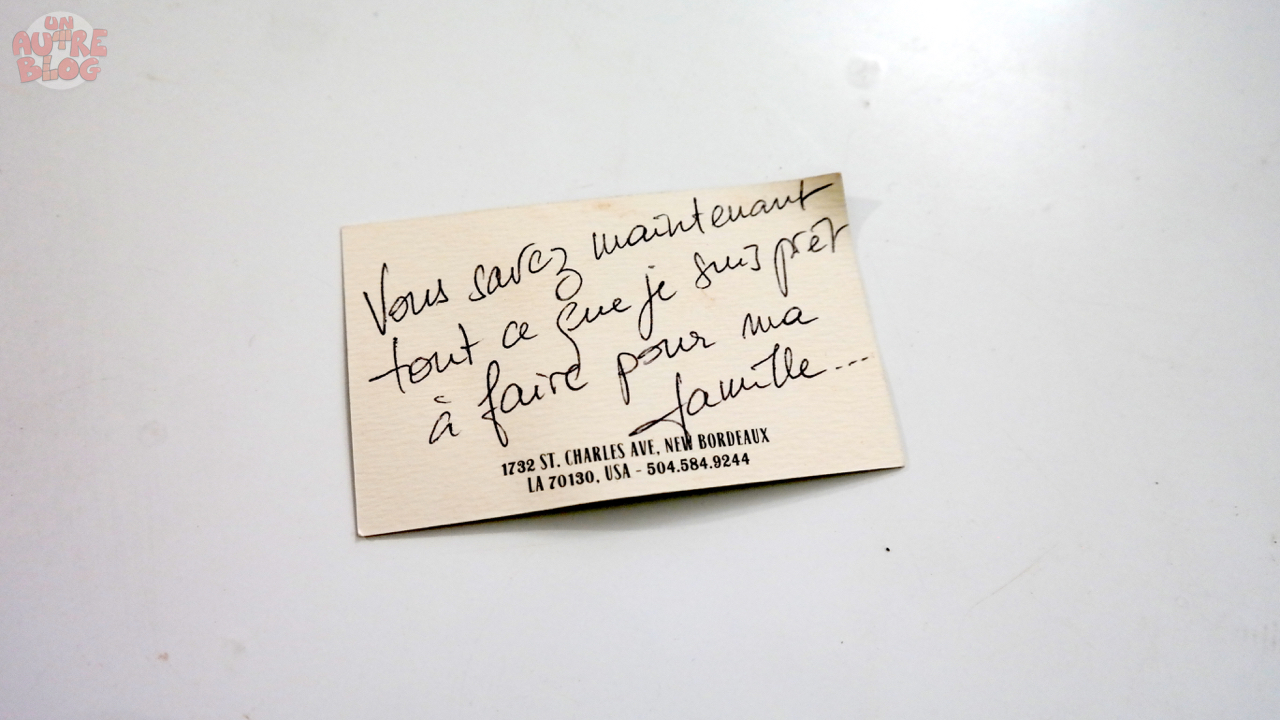 UN
AUTRE
BLOG
Vous savez maintenant
tout ce que je suis prêt
à faire pour ma
famille....
1732 ST. CHARLES AVE, NEW BORDEAUX
LA 70130, USA - 504.584.9244